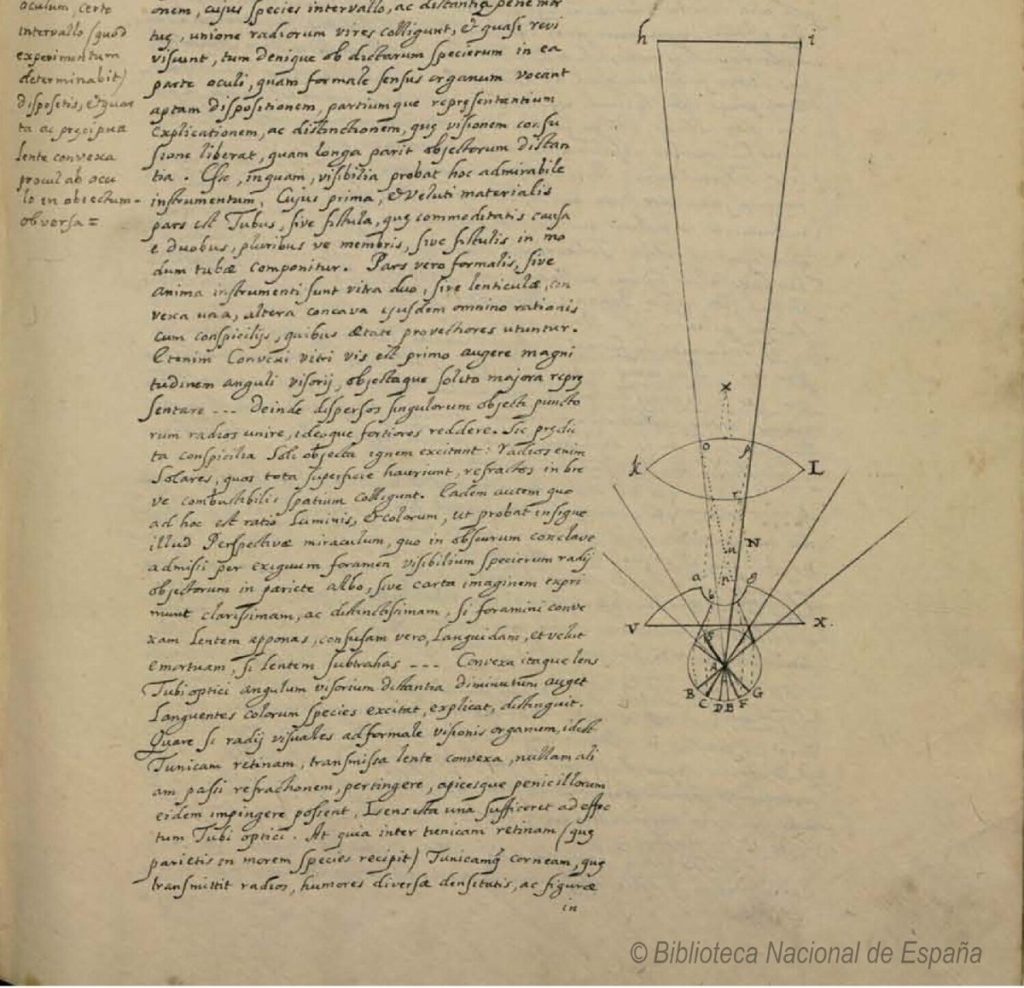 oculum, certo
intervallo (quod
experimentum
determinabit)
dispositis, et quor
ta ac precipua
lente convexa
procul ab ocu
lo in obiectum
obversa =
onem, cujus species intervallo, ac distantia pene mor
tuę, unione radiorum vires colligunt, et quasi revi
viscunt, tum denique ob dictarum specierum in ea
parte oculi, quam formale sensus organum vocant
aptam dispositionem, partiumque repręsentantium
explicationem, ac distinctionem, quę visionem confu
sione liberat, quam longa parit objectorum distan
tia. Esse, inquam, visibilia probat hoc admirabile
instrumentum, Cujus prima, et veluti materialis
pars est Tubus, sive fistula, quę commoditatis causa
e duobus, pluribus ve membris, sive fistulis in mo
dum tubæ componitur. Pars vero formalis, sive
anima instrumenti sunt vitra duo, sive lenticulæ, con
vexa una, altera concava ejusdem omnino rationis
cum conspicilijs, quibus ætate provectiores utuntur.
Etenim Convexi vitri vis est primo augere magni
tudinem anguli visorij, objectaque solito majora reprę
sentare --- Deinde dispersos singulorum objecti puncto
rum radios unire, ideoque fortiores reddere. Sic prędic
ta conspicilia Soli objecta ignem excitant: radios enim
Solares, quos tota superficie hauriunt, refractos in bre
ve combustibilis spatium colligunt. Eadem autem quo
ad hoc est ratio Luminis, et colorum, ut probat insigne
illud Perspectivæ miraculum, quo in obscurum conclave
admissi per exiguum foramen visibilium specierum radij
objectorum in pariete albo, sive carta imaginem expri
munt clarissimam, ac distinctissimam, si foramini conve
xam Lentem apponas, confusam vero, Languidam, et velut
emortuam, si Lentem subtrahas --- Convexa itaque lens
Tubi optici angulum visorium distantia diminutum auget
Languentes colorum species excitat, explicat, distinguit.
Quare si radij visuales ad formale visionis organum, id est
Tunicam retinam, transmissa lente convexa, nullam ali
am passi refractionem, pertingere, apicesque penicillorum
eidem impingere possent, Lens ista una sufficeret ad effec
tum Tubi optici. At quia inter tunicam retinam (quę
parietis in morem species recipit) Tunicamq̃ corneam, quę
transmittit radios, humores diversæ densitatis, ac figuræ
in
h i
x
o p
k L
r
n N
a g
V X
A
B C D E F G
© Biblioteca Nacional de España